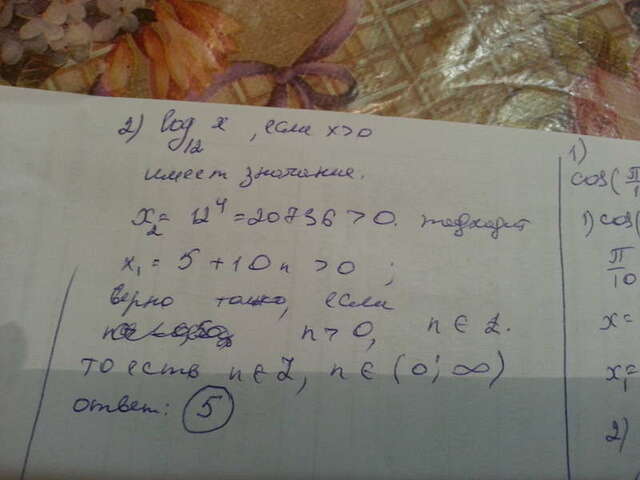 2) log₁₂ x , если x>0
имеет значение.
x₂ = 12⁴ = 20736 > 0. подходит
x₁ = 5 + 10n > 0 ;
верно только, если
n > 0, n ∈ Z.
то есть n ∈ Z, n ∈ (0; ∞)
ответ: 5
1)
cos(π/1
1) cos(
π/10
x =
x₁ =
2)